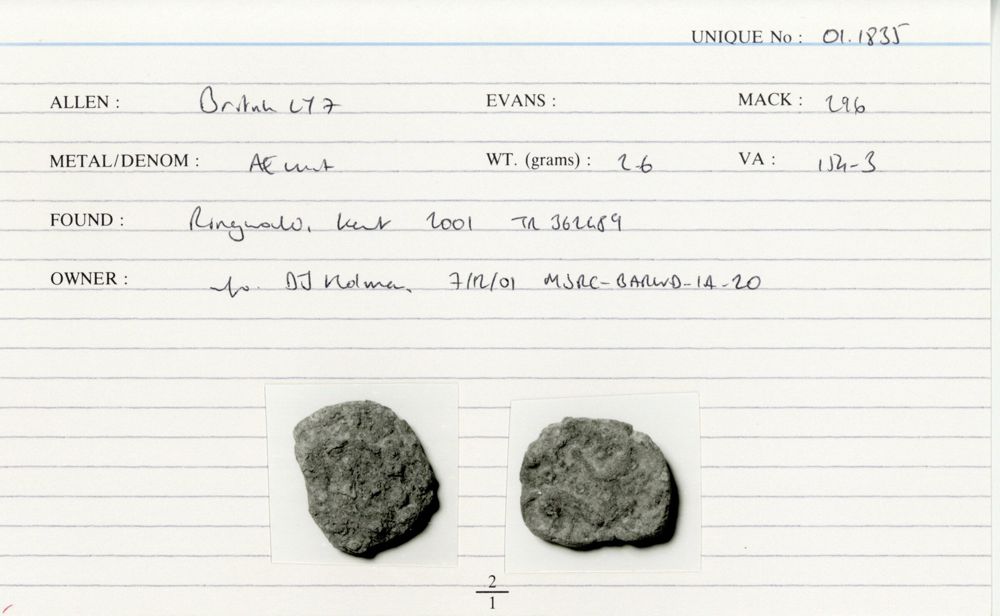 UNIQUE No : 01.1835
ALLEN : British LY7 EVANS : MACK : 296
METAL/DENOM : Æ unit WT. (grams) : 2.6 VA : 154-3
FOUND : Ringwould, Kent 2001 TR 362489
OWNER : DJ Holman, 7/12/01 MSRC-BARWD-IA-20
2
1